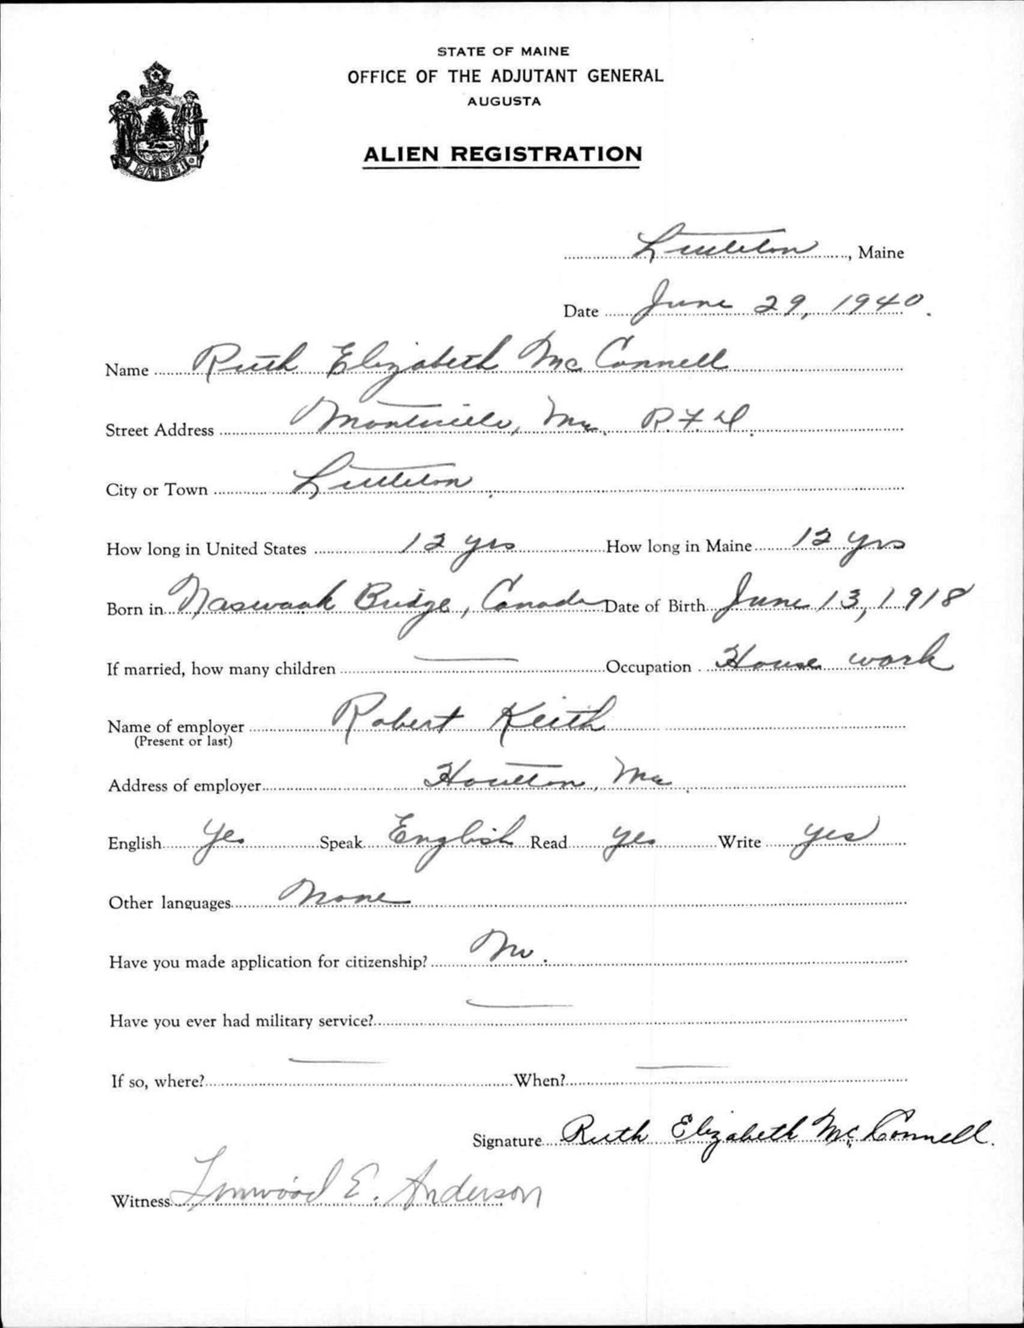 STATE OF MAINE
OFFICE OF THE ADJUTANT GENERAL
AUGUSTA
ALIEN REGISTRATION
MAINE
Littleton, Maine
Date June 29, 1940.
Name Ruth Elizabeth McConnell
Street Address Monticello, Me. R.F.D.
City or Town Littleton.
How long in United States 12 yrs How long in Maine 12 yrs
Born in Naswaak Bridge, Canada Date of Birth June 13, 1918
If married, how many children — Occupation House work
Name of employer Robert Keith
(Present or last)
Address of employer Houlton, Me.
English Yes Speak English Read yes Write yes
Other languages None
Have you made application for citizenship? No.
Have you ever had military service? —
If so, where? — When? —
Signature Ruth Elizabeth McConnell.
Witness Linwood E. Anderson